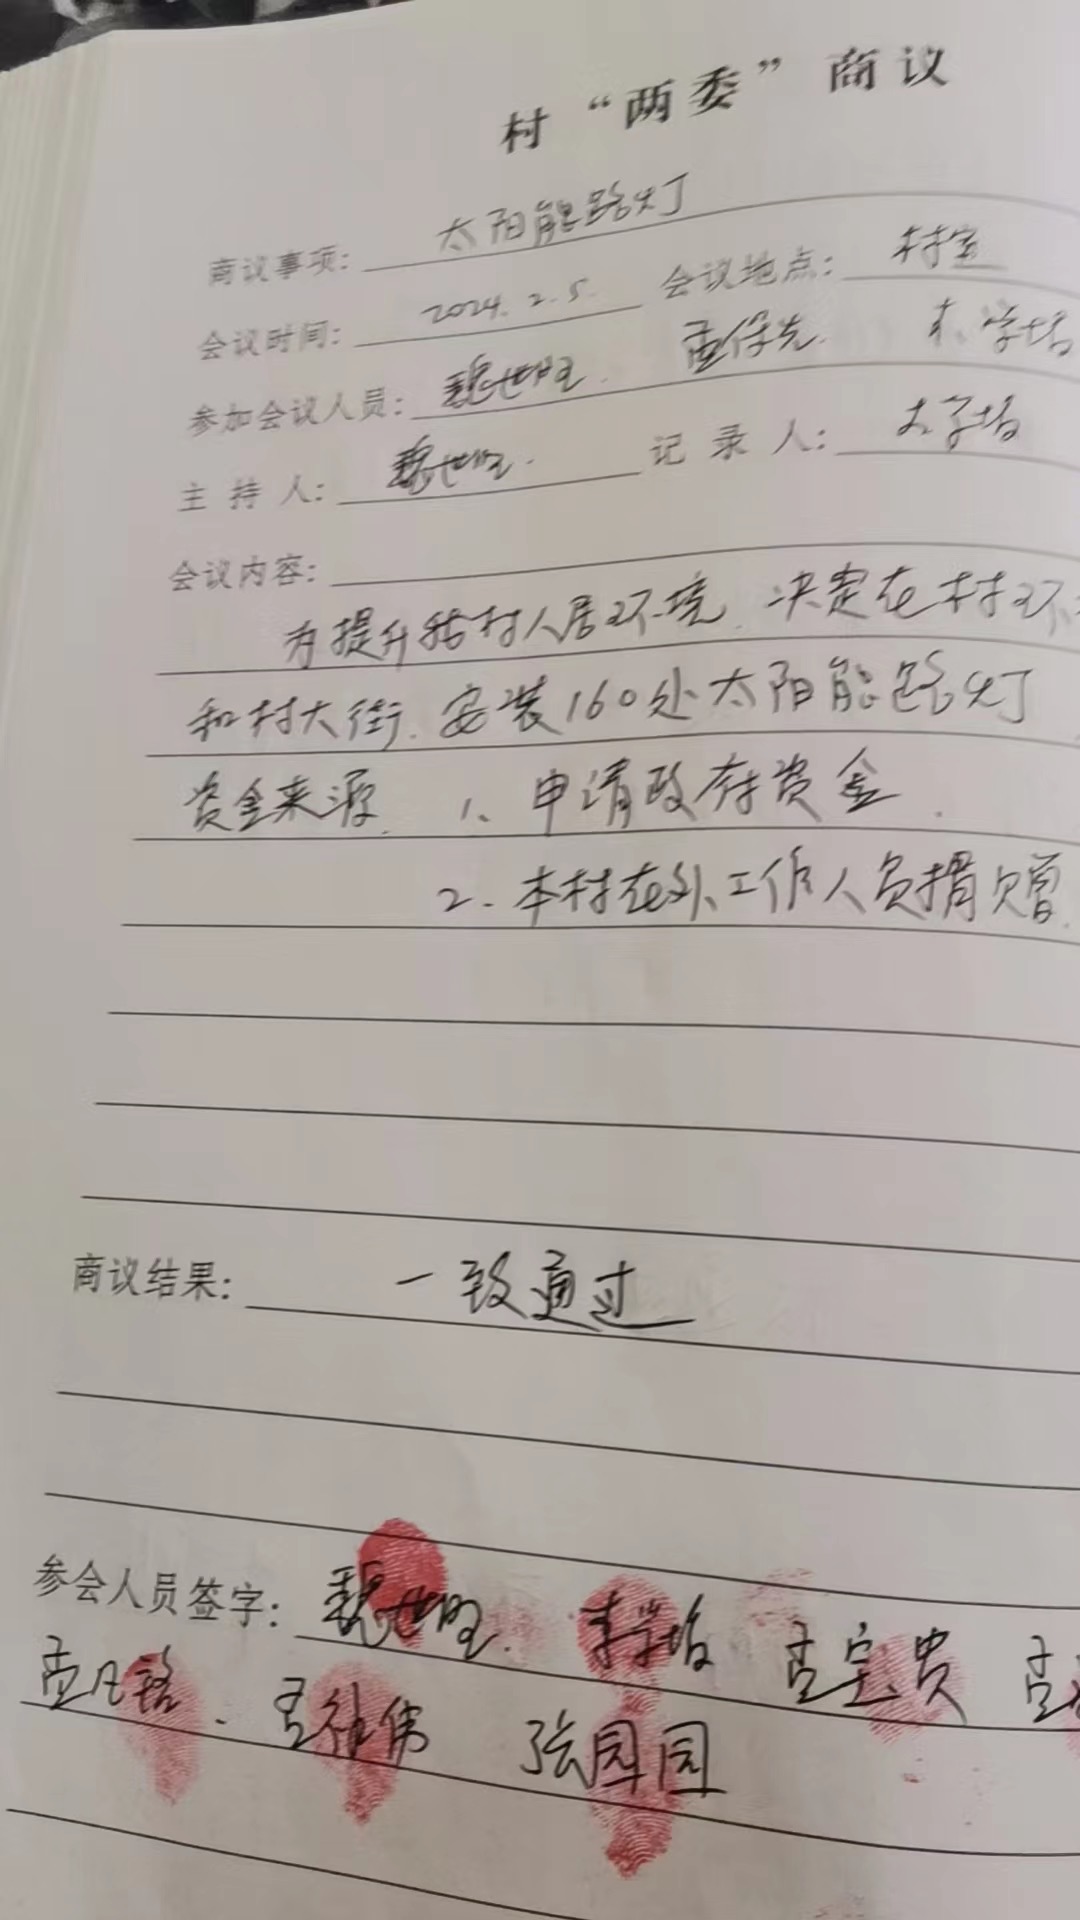 村“两委”商议
商议事项：太阳能路灯
会议时间：2024.2.5. 会议地点：村室
参加会议人员：魏世旺.
主持人：魏世旺. 记录人：
会议内容：
为提升我村人居环境.决定在村环
和村大街.安装160处太阳能路灯
资金来源. 1、申请政府资金.
2.本村在外工作人员捐赠.
商议结果：一致通过
参会人员签字：魏世旺.
张园园